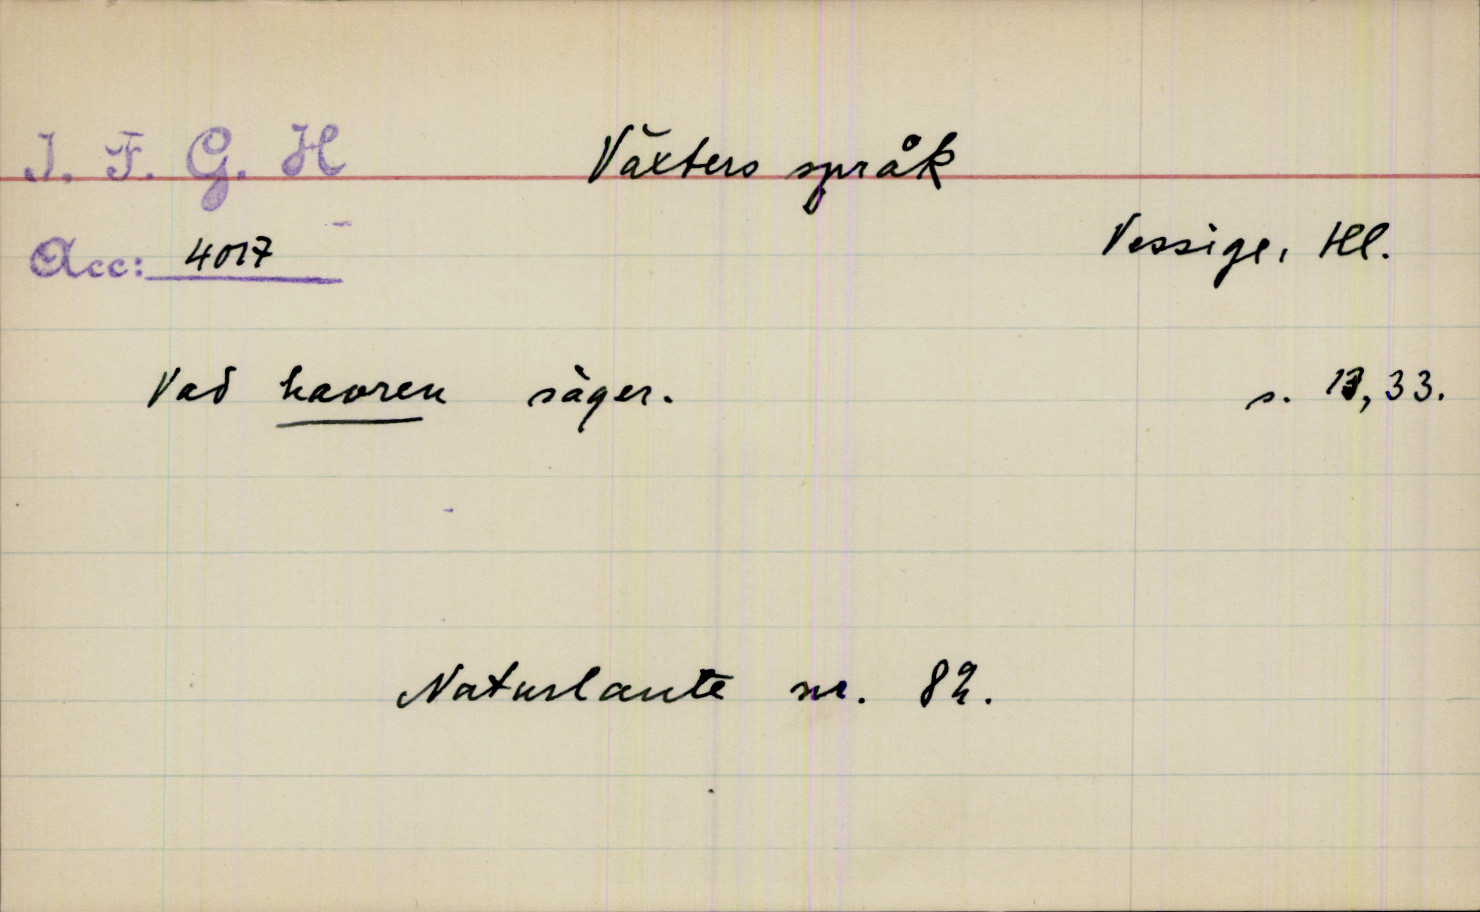 I. F. G. H
Växters språk
Acc: 4017
Vessige, Hl.
Vad havren säger.
s. 13, 33.
Naturlaute nr. 82.